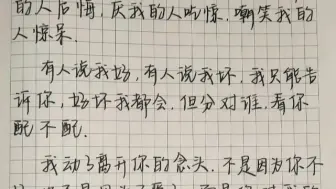 的人后悔,厌我的人吃惊,嘲笑我的
人惊呆.
有人说我好,有人说我坏,我只能告
诉你,好坏我都会,但分对谁,看你
配不配.
我动了离开你的念头,不是因为你不